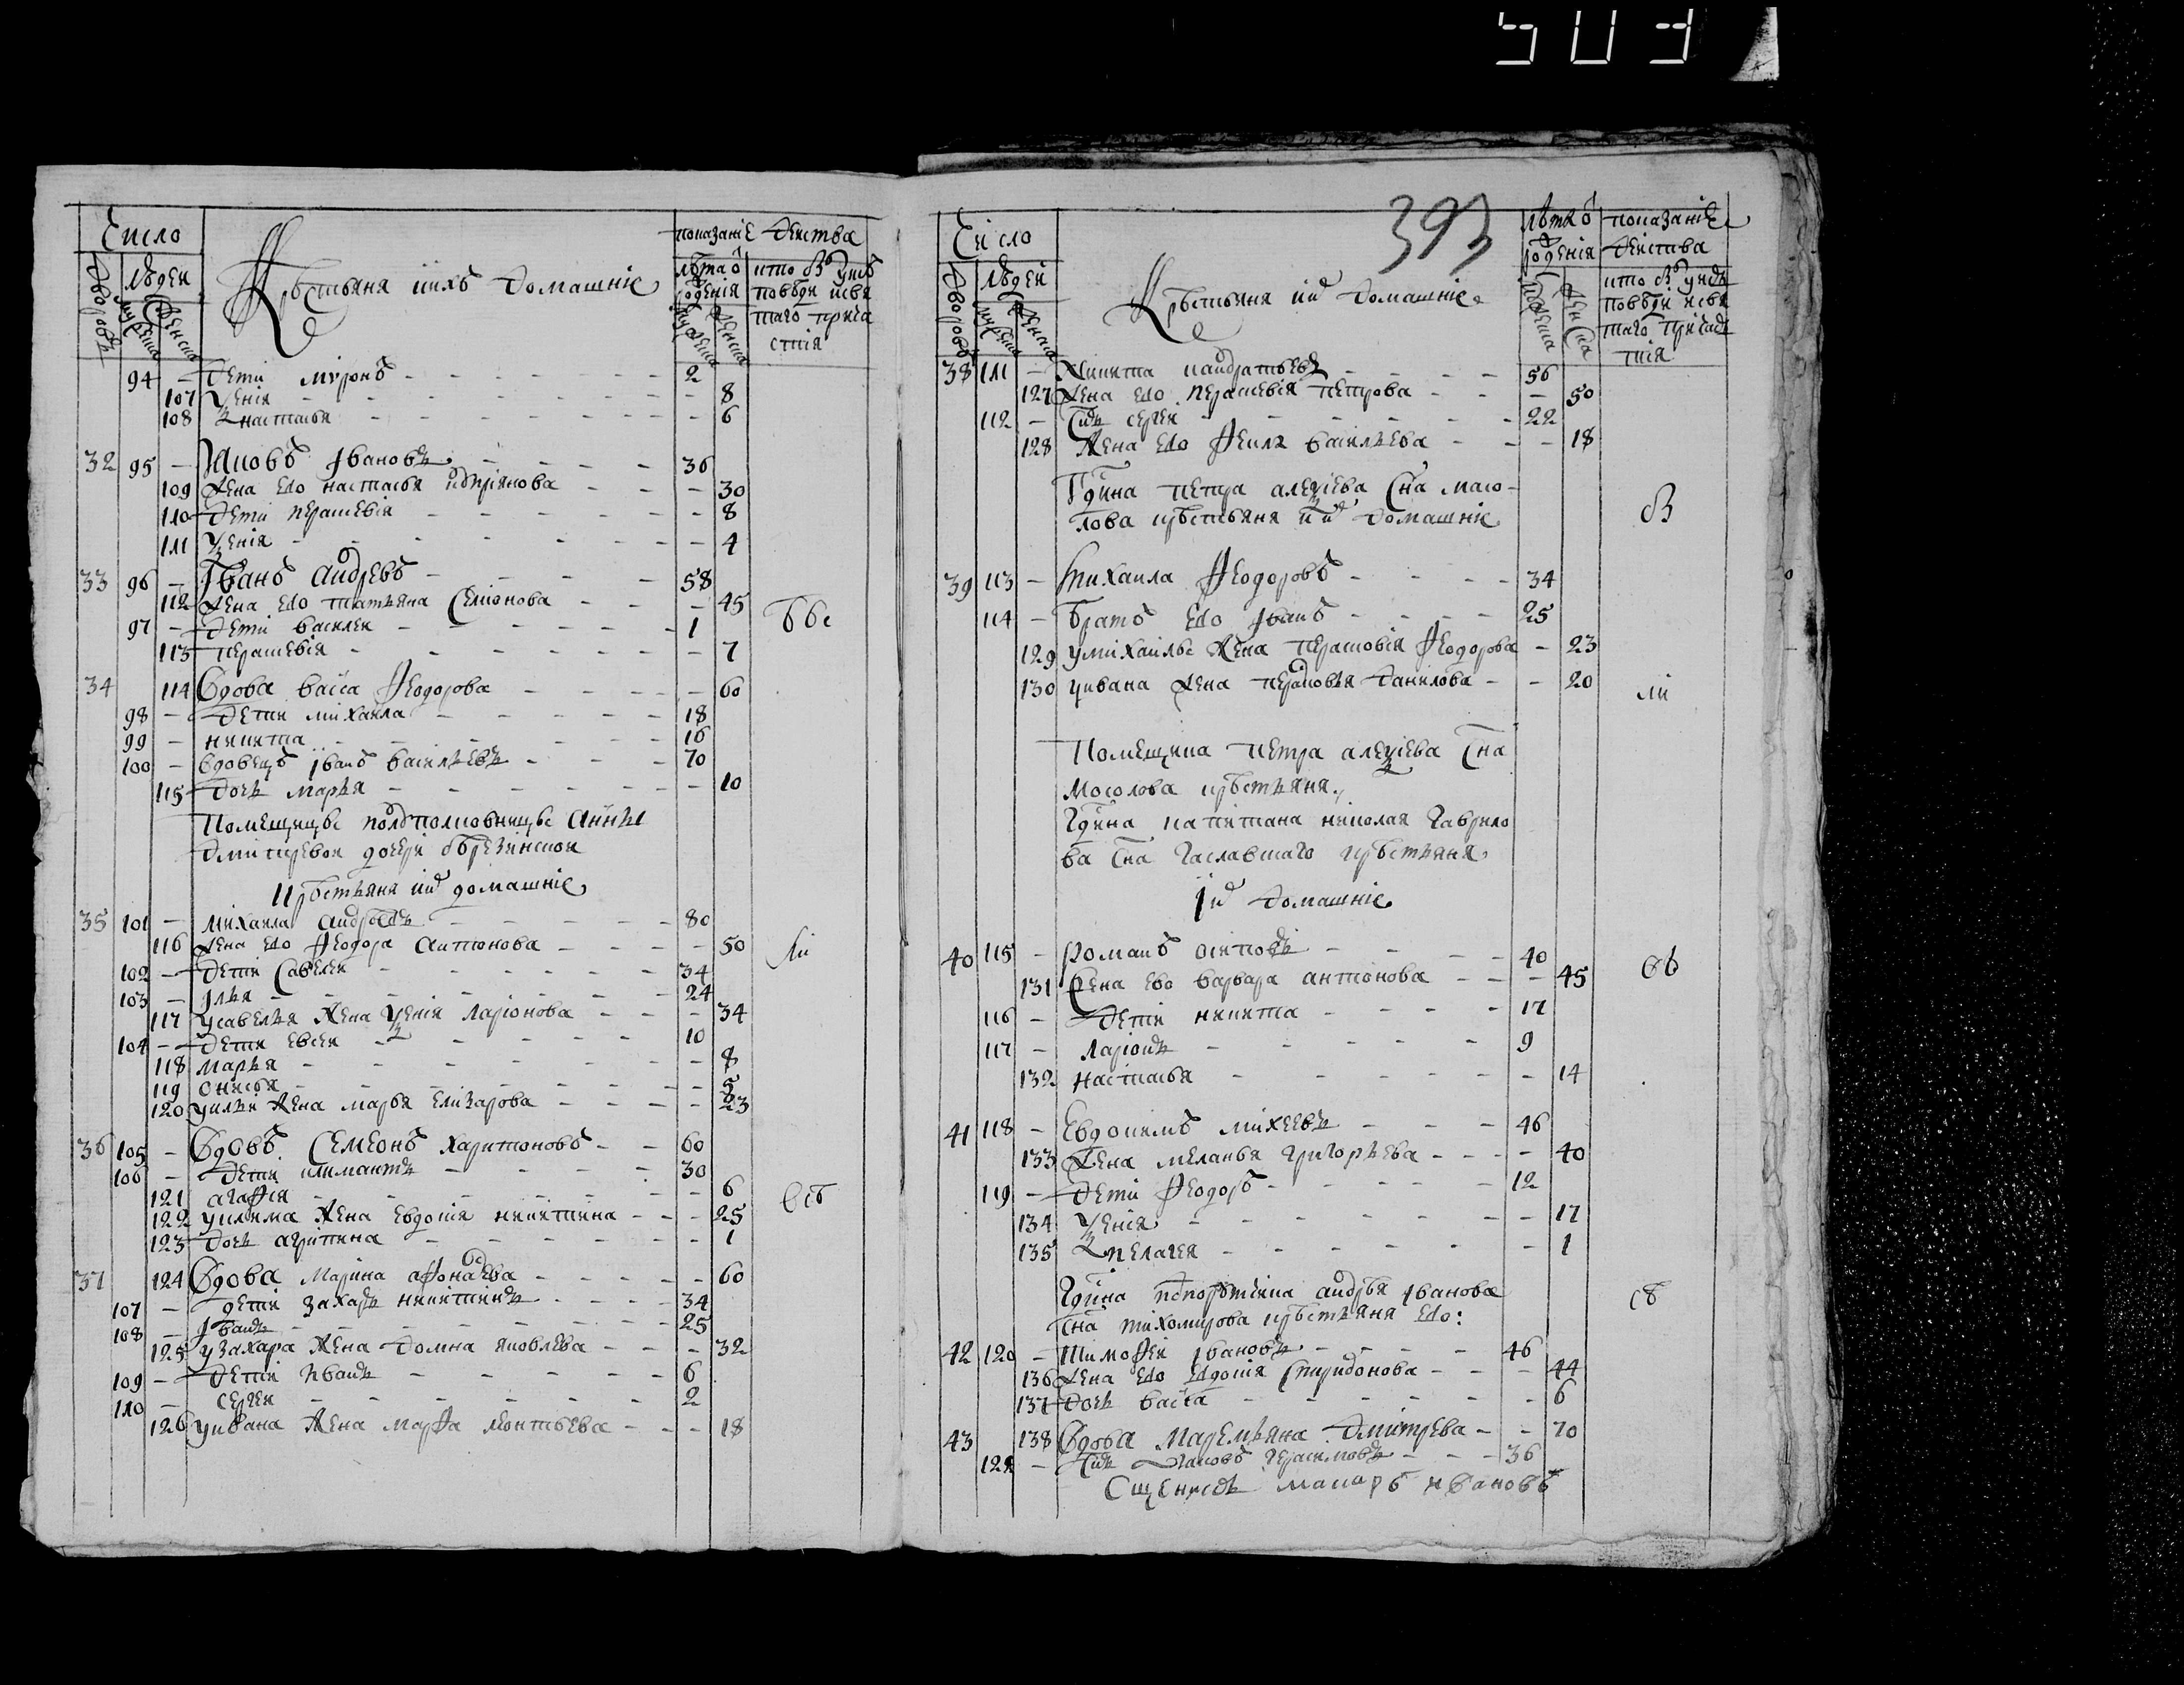 503
Число
Дворовъ
Людеи
мужеска
женска
Крестьяня и ихъ домашние
показание действа
лета о рождения
мужеска
женска
кто былъ у исповеди и святаго причастия
94 — дети миронъ — 2
107 Ѯения — 8
108 настасья — 6
32 95 — Яковъ Ивановъ — 36
109 жена ево настасья андриянова — 30
110 дети парасковия — 8
111 Ѯения — 4
33 96 — Иванъ андреевъ — 58
112 жена ево татьяна Семионова — 45
97 — дети василеи — 1
113 парасковия — 7
34 114 вдова васса Ѳеодорова — 60
98 — дети михаила — 18
99 — никита — 16
100 — вдовецъ Иванъ васильевъ — 70
115 дочь марья — 10
Помещицы подполковницы Анны
Дмитревои дочери
крестьяня и ихъ домашние
35 101 — михаила андреевъ — 80
116 жена ево Ѳеодора антонова — 50
102 — дети Савелеи — 34
103 — Илья — 24
117 усавелья жена Ѯения ларионова — 34
104 — дети евсеи — 10
118 марья — 8
119 онисья — 5
120 уильи жена марья елизарова — 23
36 105 — вдовъ Семеонъ харитоновъ — 60
106 — дети климантъ — 30
121 агафия — 6
122 уклима жена евдокия никитина — 25
123 дочь агрипина — 1
37 124 вдова марина афонасева — 60
107 — дети захаръ никитинъ — 34
108 — Иванъ — 25
125 узахара жена домна яковлева — 32
109 — дети Иванъ — 6
110 — сергеи — 2
126 уивана жена марфа леонтьева — 18
393
Число
Дворовъ
Людеи
мужеска
женска
Крестьяня и ихъ домашние
лета о рождения
мужеска
женска
показание действа
кто былъ у исповеди и святаго причастия
38 111 — Никита кандратьевъ — 56
127 жена ево парасковия петрова — 50
112 — Сынъ сергеи — 22
128 жена ево Ѳекла васильева — 18
Гдина петра алеѯиева Сна масо-
лова крестьяня и ихъ домашние
39 113 — михаила Ѳеодоровъ — 34
114 — братъ ево Иванъ — 25
129 умихаилы жена парасковия Ѳеодорова — 23
130 уивана жена парасковья данилова — 20
Помещика петра алеѯиева Сна
мосолова крестьяня
Гдина капитана николая Гаврило
ва Сна Гаславскаго крестьяня
и ихъ домашние
40 115 — Романъ осиповъ — 40
131 жена ево варвара антонова — 45
116 — дети никита — 17
117 — ларионъ — 9
132 настасья — 14
41 118 — евдокимъ михеевъ — 46
133 жена меланья григорьева — 40
119 — дети Ѳеодоръ — 12
134 Ѯения — 17
135 пелагея — 1
Гдина подпорутчика андрея Иванова
Сна тихомирова крестьяня ево:
42 120 — Тимофеи Ивановъ — 46
136 жена ево евдокия спиридонова — 44
137 дочь васса — 6
43 138 вдова маремьяна дмитрева — 70
121 — Сынъ Яковъ герасимовъ — 36
Сщенникъ макаръ Ивановъ